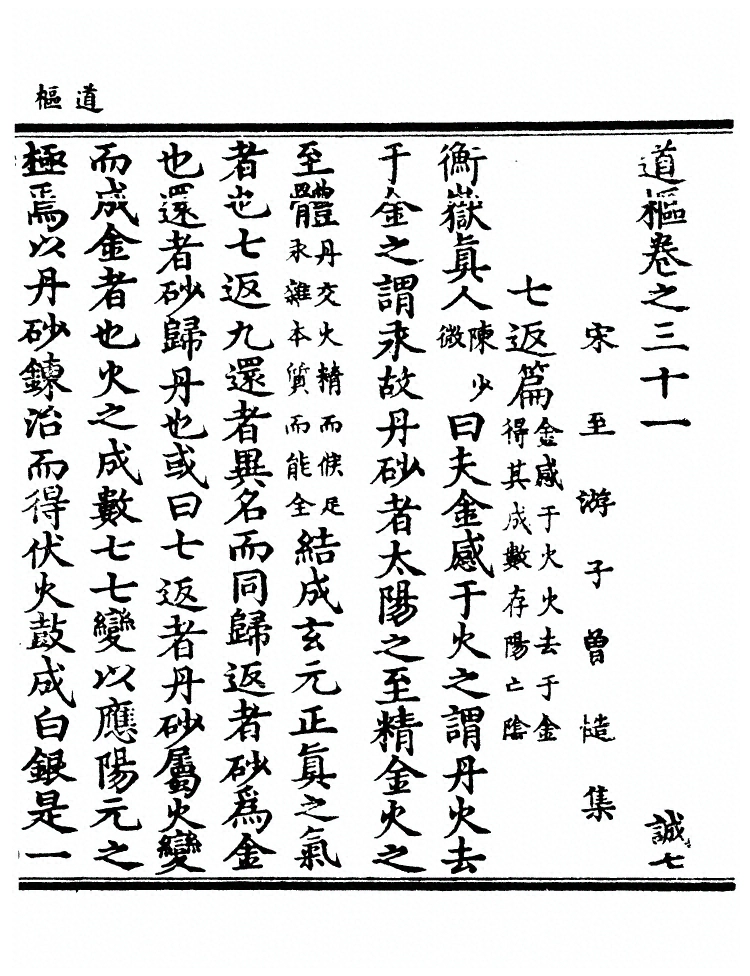 道樞
道樞卷之三十一 誠七
宋至游子曾慥集
七返篇金感于火火去于金得其成數存陽亡陰
衡嶽眞人陳少微曰夫金感于火之謂丹火去
于金之謂汞故丹砂者太陽之至精金火之
至體丹交火精而候足汞雜本質而能全結成玄元正眞之氣
者也七返九還者異名而同歸返者砂爲金
也還者砂歸丹也或曰七返者丹砂屬火變
而成金者也火之成數七七變以應陽元之
極焉以丹砂鍊治而得伏火鼓成白銀是一